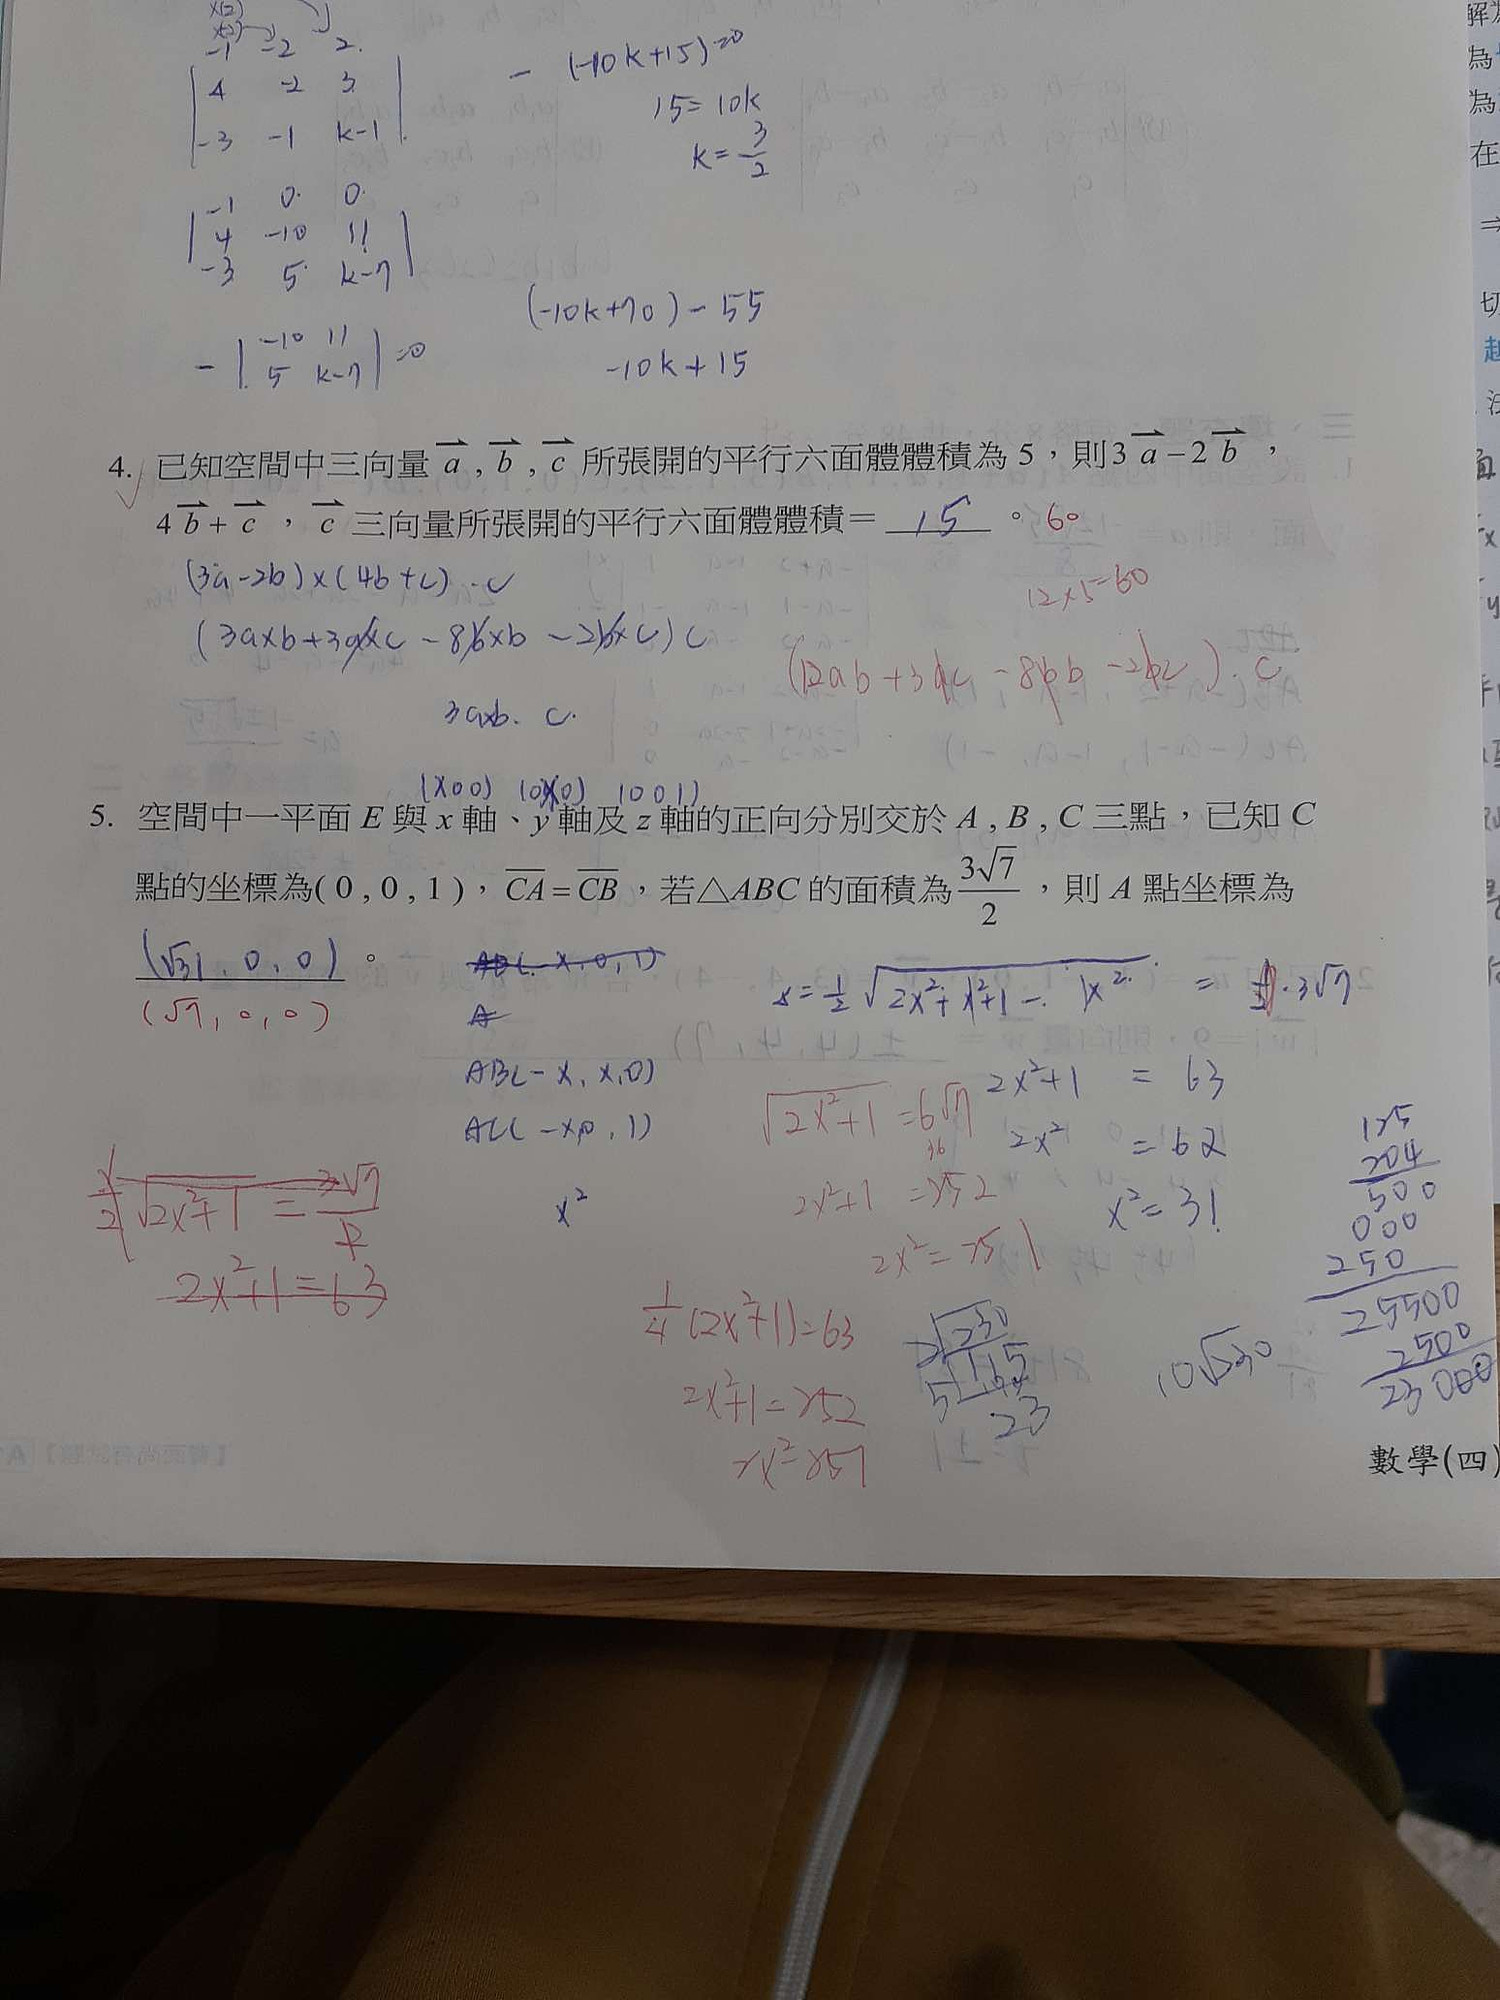 -1 -2 2
4 -2 3
-3 -1 k-1
-(-10k+15)=0
15=10k
k=3/2
-1 0 0
4 -10 11
-3 5 k-7
-|-10 11|=0
5 k-7
(-10k+70)-55
-10k+15
4. 已知空間中三向量 a , b , c 所張開的平行六面體體積為 5,則3 a - 2 b ,
4 b + c , c 三向量所張開的平行六面體體積= 15 。60
(3a-2b)×(4b+c)·c
12×5=60
(3a×b+3a×c-8b×b-2b×c)c
(12ab+3ac-8bb-2bc)·c
3a×b·c
(x00) (0x0) (001)
5. 空間中一平面 E 與 x 軸、y 軸及 z 軸的正向分別交於 A , B , C 三點,已知 C
點的坐標為( 0 , 0 , 1 ),CA = CB,若△ABC 的面積為 3√7/2,則 A 點坐標為
(√31,0,0)。
(√7,0,0)
AB(-x,x,0)
AC(-x,0,1)
2x²+1 = 63
2x² = 62
x² = 31
√2x²+1 = 6√7
36
2x²+1 = 252
2x² = 251
x²
1/2 √2x²+1 = 3√7/2
2x²+1=63
1/4(2x²+1)=63
2x²+1=252
2x²=251
2 230
5 115
23
10√230
125
204
500
000
250
25500
2500
23000
數學(四)